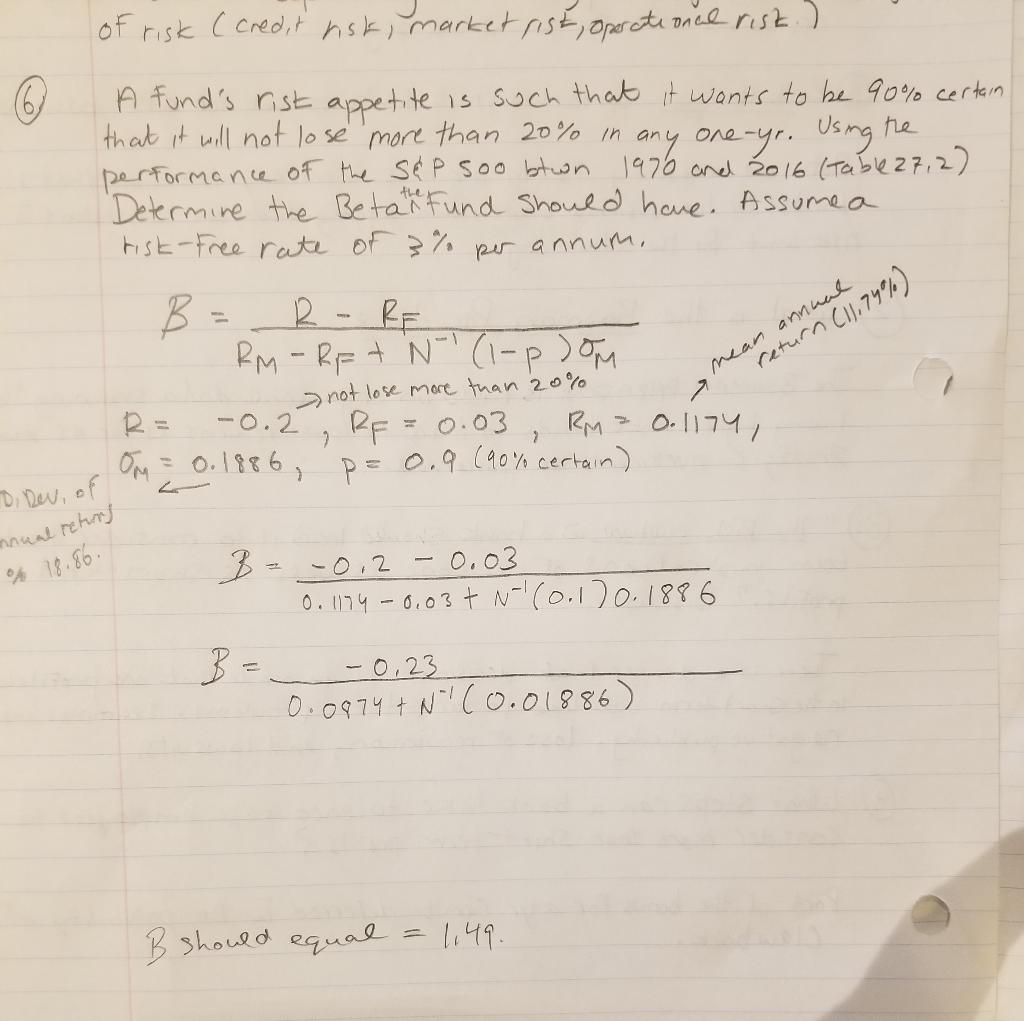 of risk (credit risk, market risk, operational risk.)
6 A fund's risk appetite is such that it wants to be 90% certain
that it will not lose more than 20% in any one-yr. Using the
performance of the S&P 500 btwn 1970 and 2016 (Table 27.2)
Determine the Beta the fund should have. Assume a
risk-free rate of 3% per annum.
B = R - RF
RM - RF + N⁻¹ (1-p) σM
mean annual
return (11.74%)
→ not lose more than 20%
R = -0.2, RF = 0.03, RM = 0.1174,
σM = 0.1886, p = 0.9 (90% certain)
D. Dev. of
nnual returns
% 18.86.
B = -0.2 - 0.03
0.1174 - 0.03 + N⁻¹(0.1) 0.1886
B = -0.23
0.0874 + N⁻¹(0.01886)
B should equal = 1.49.